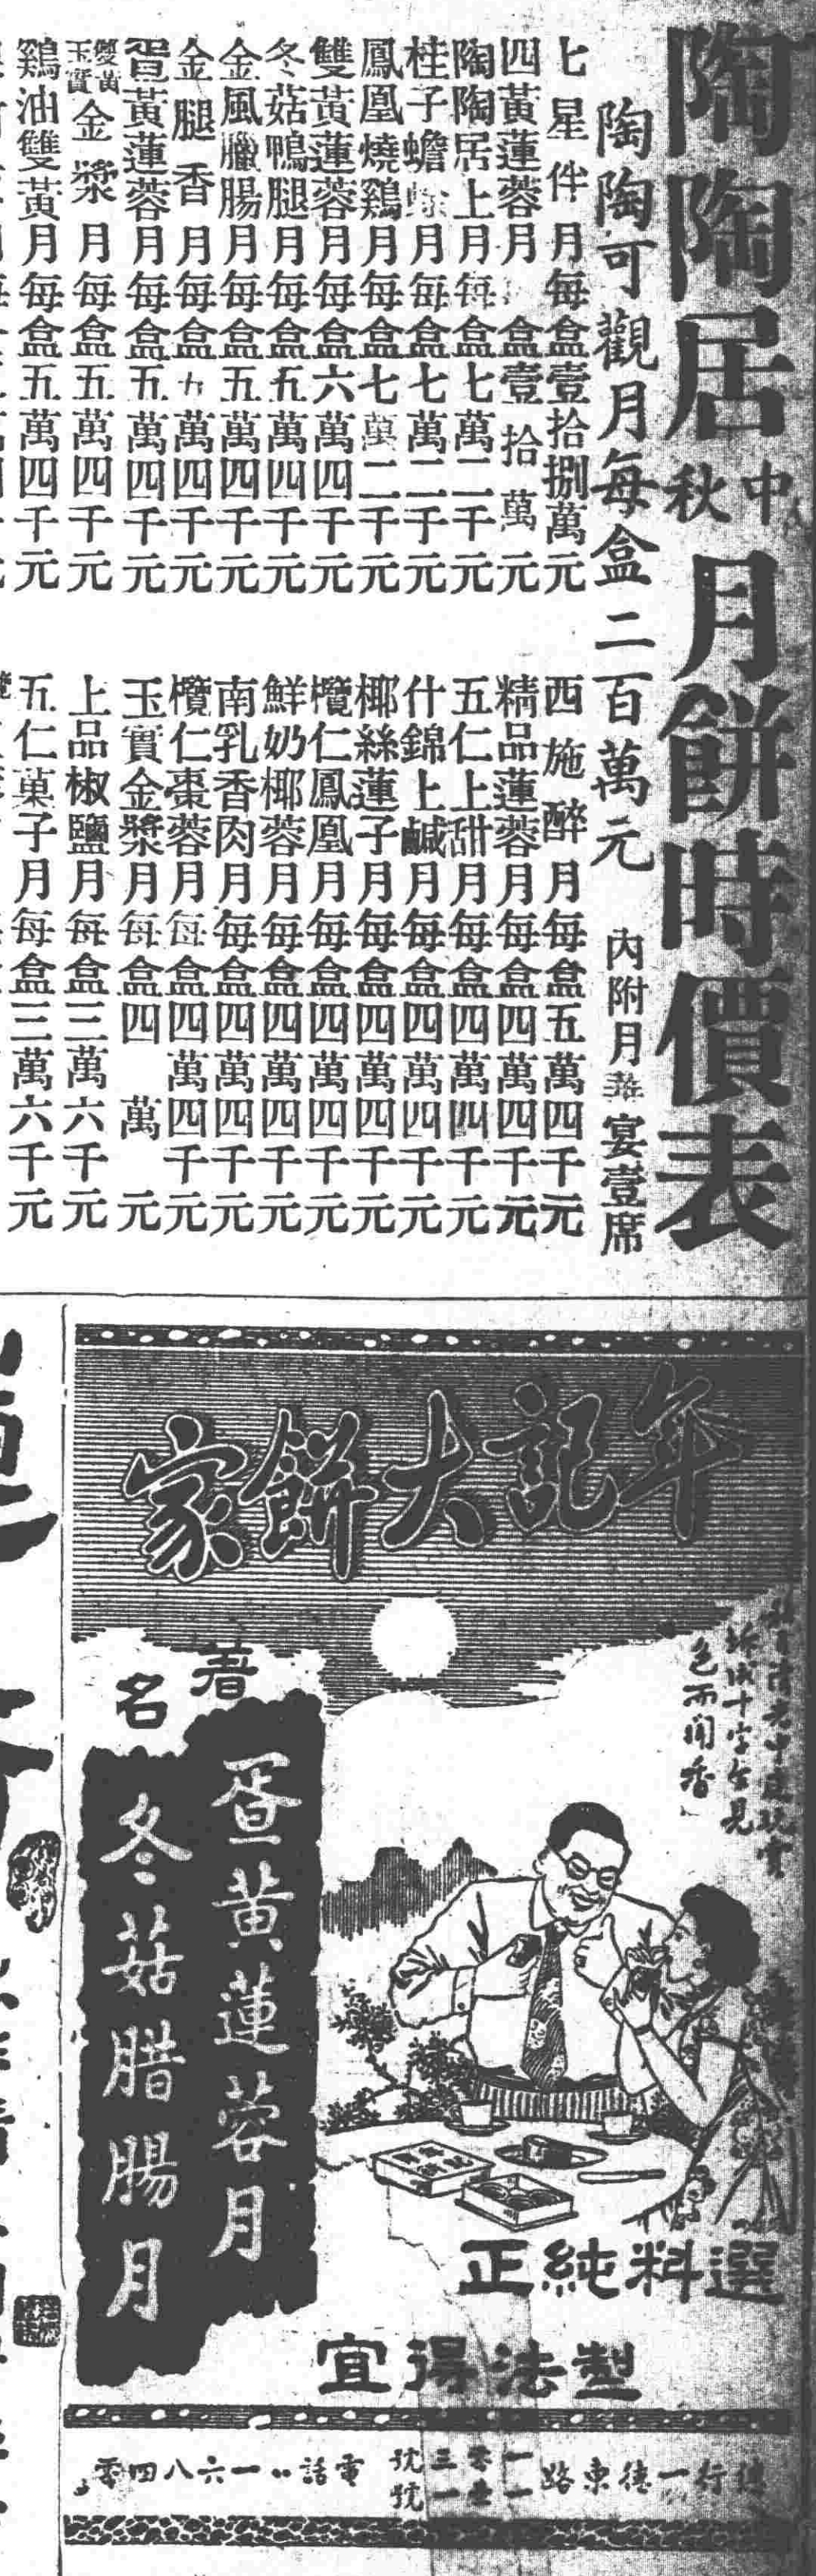 陶陶居
中秋
月餅時價表
陶陶可觀月每盒二百萬元
內附月華宴壹席
七星伴月每盒壹拾捌萬元
四黃蓮蓉月 盒壹拾萬元
陶陶居上月每盒七萬二千元
桂子蟾 月每盒七萬二千元
鳳凰燒鷄月每盒七萬二千元
雙黃蓮蓉月每盒六萬四千元
冬菇鴨腿月每盒五萬四千元
金風臘腸月每盒五萬四千元
金腿香月每盒五萬四千元
蛋黃蓮蓉月每盒五萬四千元
雙黃玉寶金漿月每盒五萬四千元
鷄油雙黃月每盒五萬四千元
西施醉月每盒五萬四千元
精品蓮蓉月每盒四萬四千元
五仁上甜月每盒四萬四千元
什錦上鹹月每盒四萬四千元
椰絲蓮子月每盒四萬四千元
欖仁鳳凰月每盒四萬四千元
鮮奶椰蓉月每盒四萬四千元
南乳香肉月每盒四萬四千元
欖仁棗蓉月每盒四萬四千元
玉寶金漿月每盒四萬元
上品椒鹽月每盒三萬六千元
五仁菓子月每盒三萬六千元
年記大餅家
色而聞香
著名
蛋黃蓮蓉月
冬菇腊腸月
選料純正
製法得宜
行一德東路
一零三號
一壹一號
電話：一六八四零